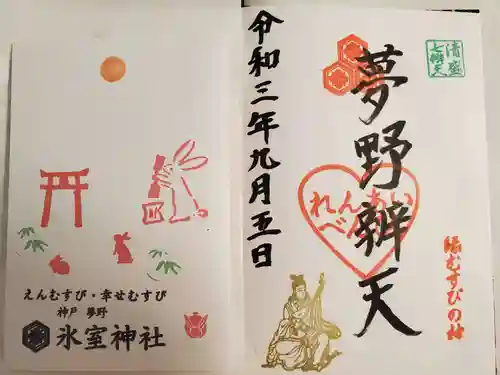 えんむすび・幸せむすび
神戸 夢野
氷室神社
清盛
七辨天
夢野辨天
れんあい
べんてん
縁むすびの神
令和三年九月五日